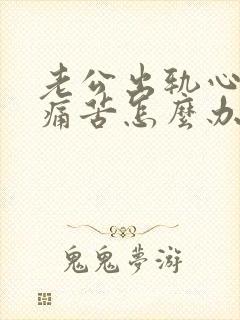 老公出轨心
痛苦怎麼办
鬼鬼夢游